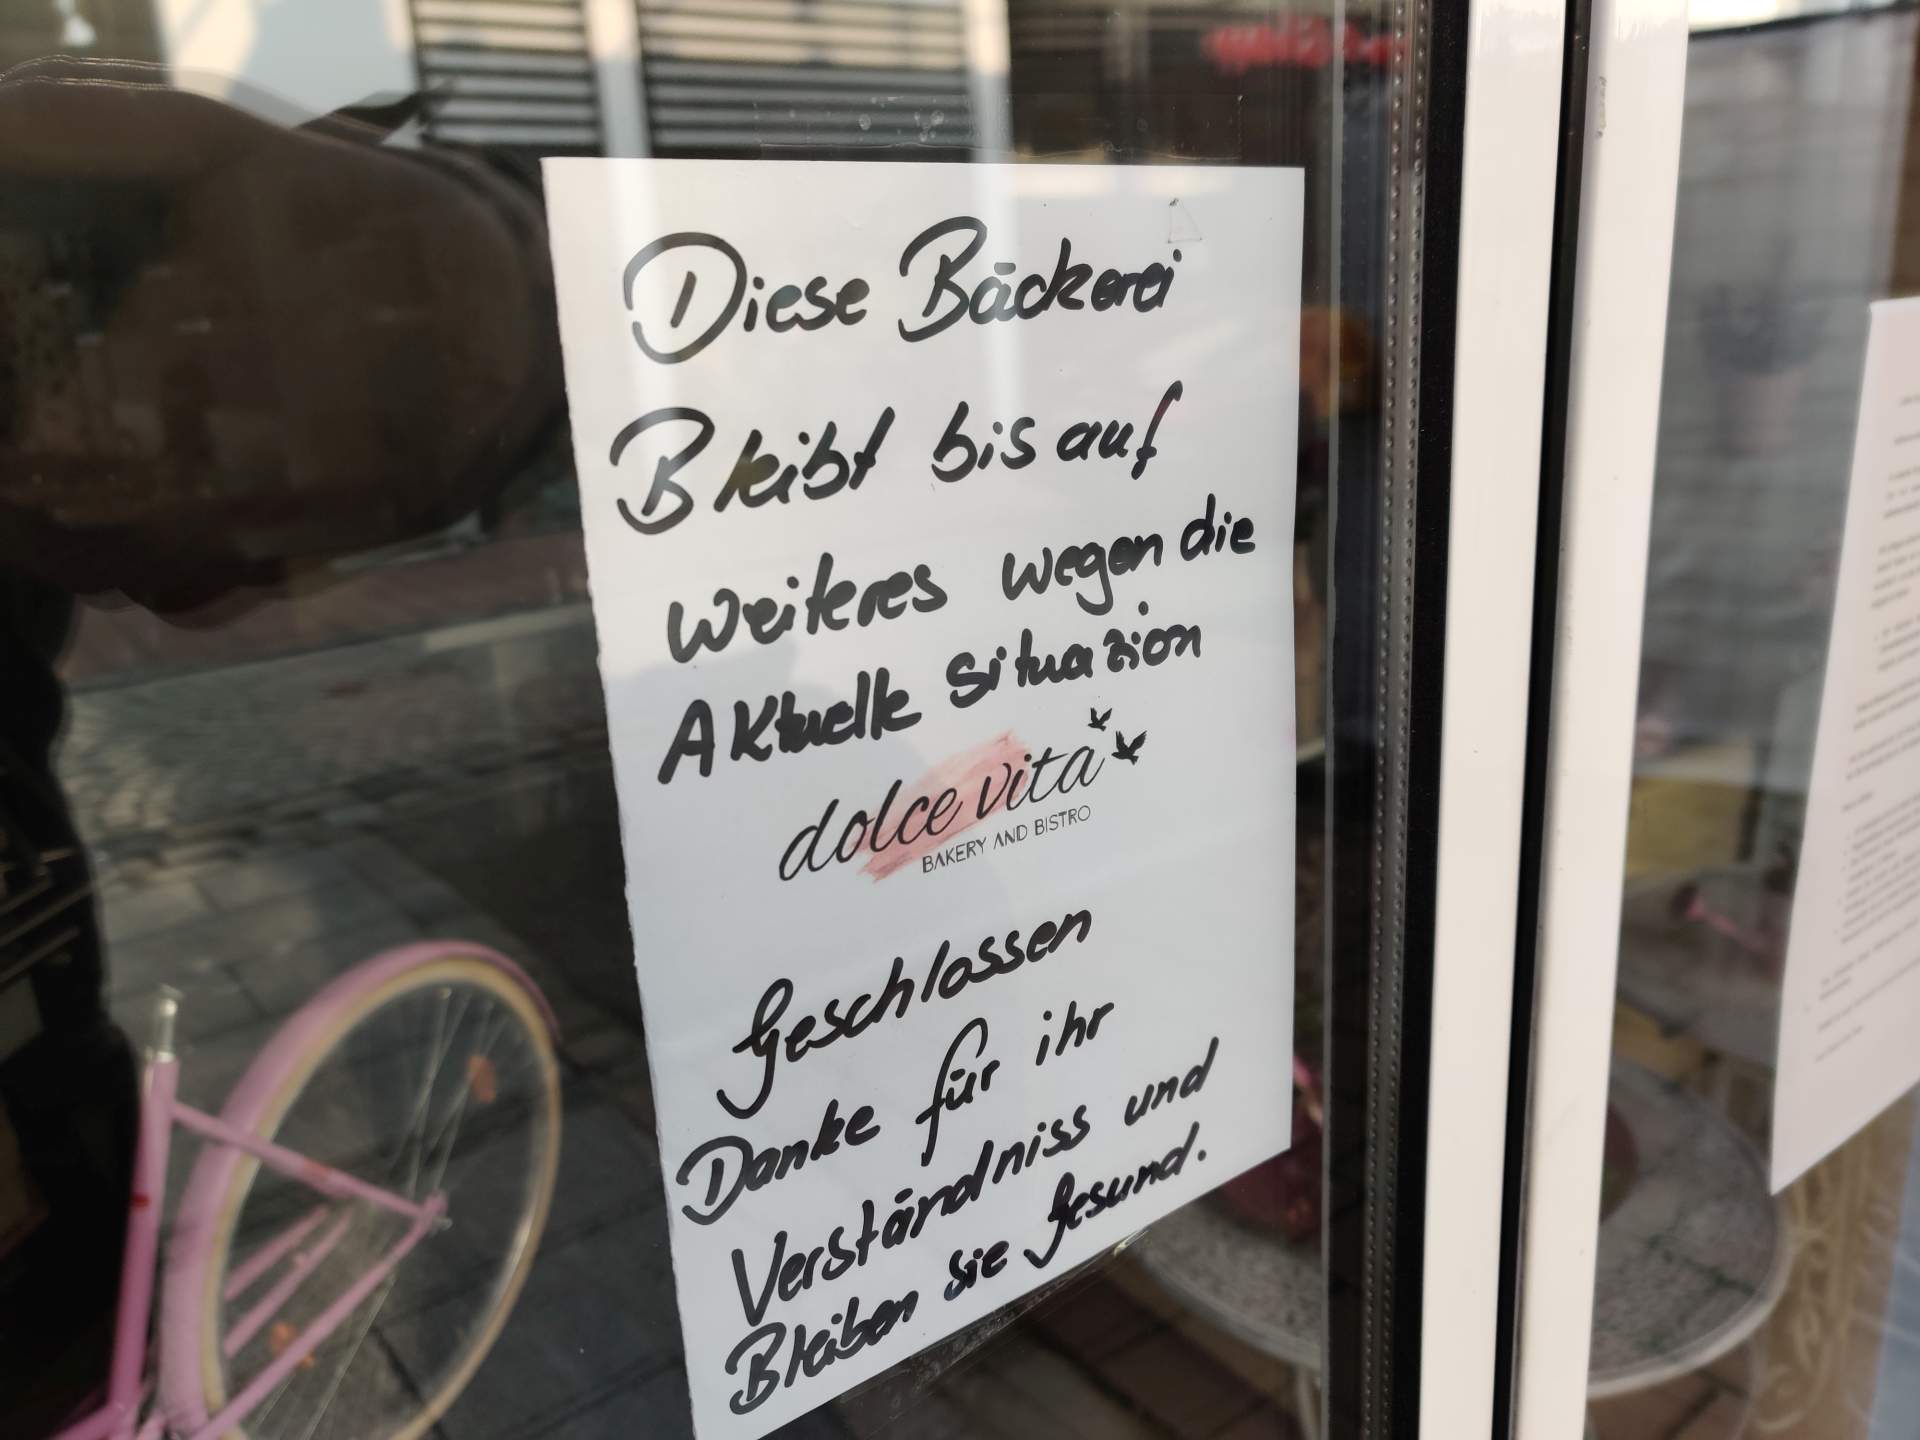 Diese Bäckerei
Bleibt bis auf
weiteres wegen die
Aktuelle Situazion
dolce vita
BAKERY AND BISTRO
Geschlossen
Danke für ihr
Verständniss und
Bleiben sie Gesund.